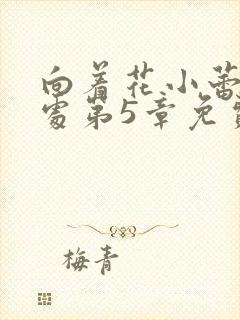 向着花小蕾
处第5章免
梅青